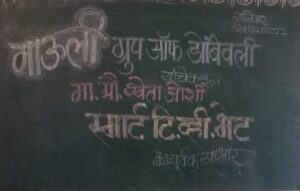 शनिवार
माऊली ग्रुप ऑफ डोंबिवली
यांचेकडून
मा. सौ. श्वेता जोशी
स्मार्ट टि.व्ही. भेट
आभार